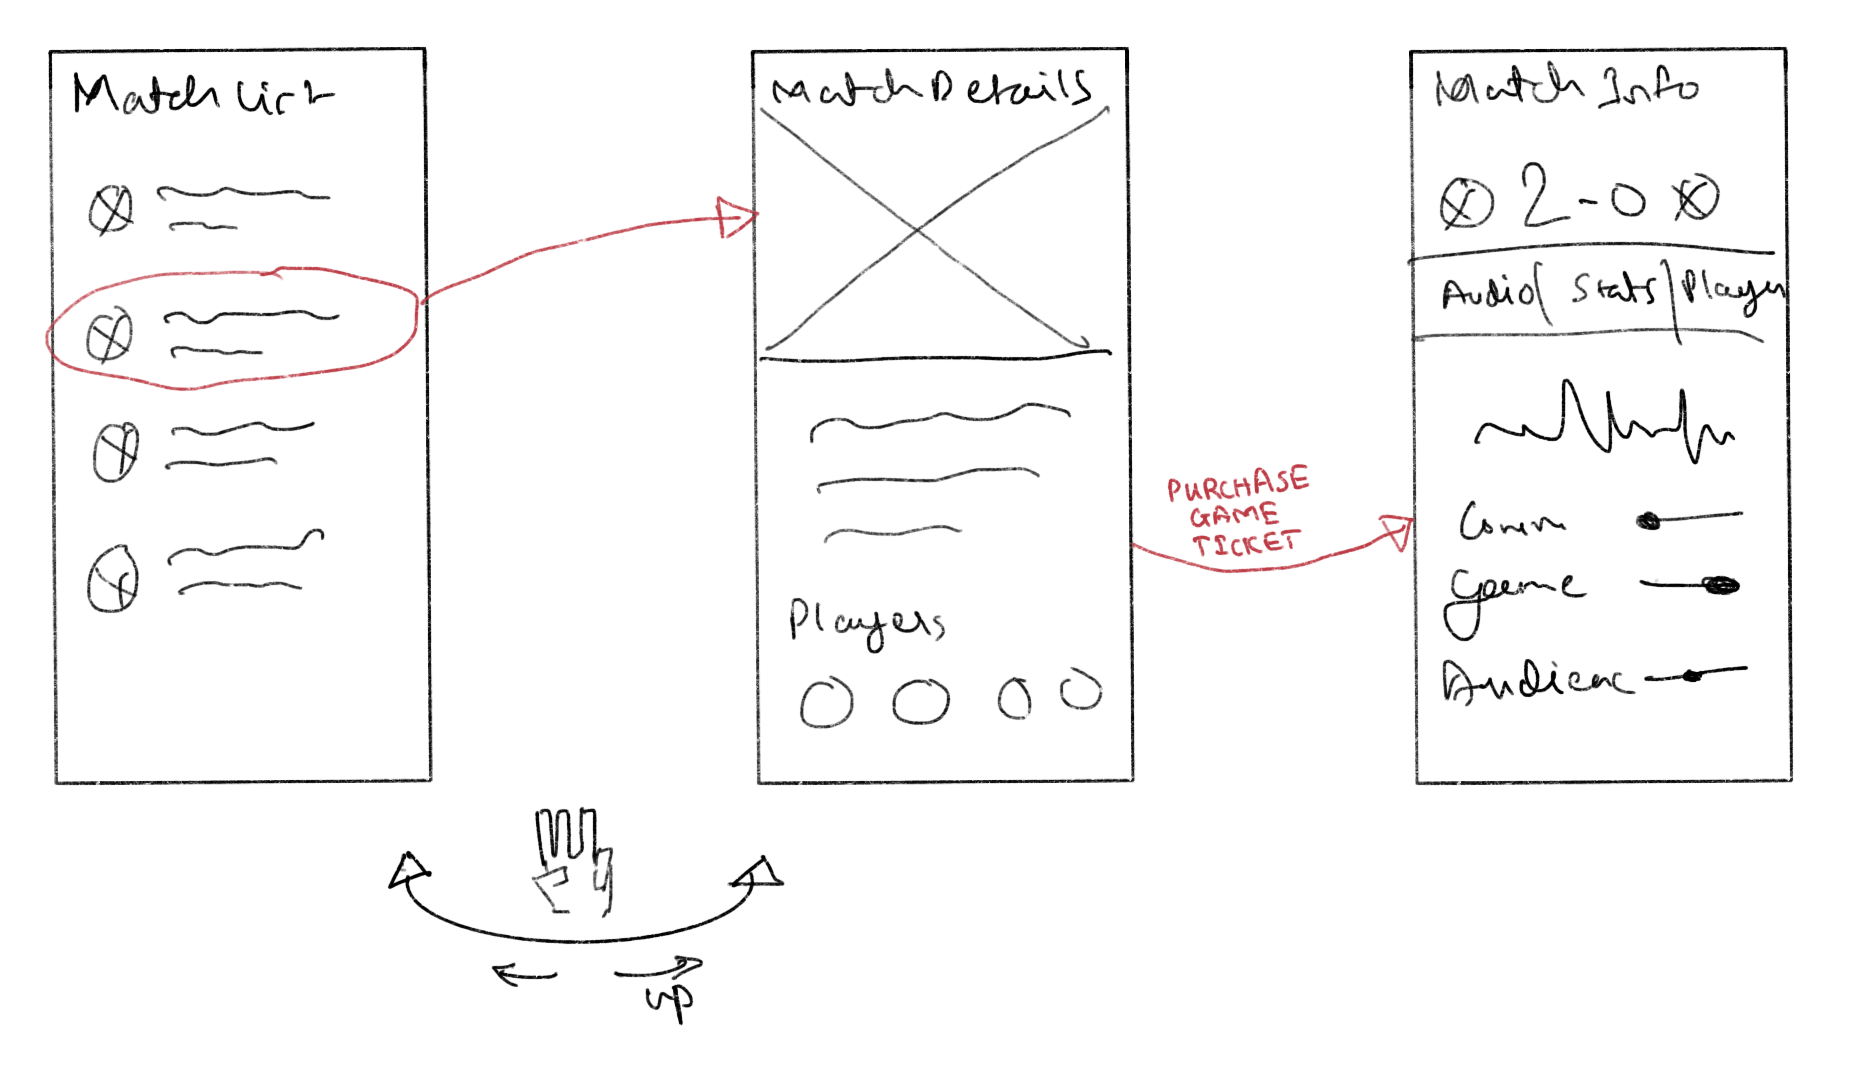 Match List
Match Details
Players
PURCHASE
GAME
TICKET
Match Info
2-0
Audio | Stats | Player
Comm
Game
Audienc
up